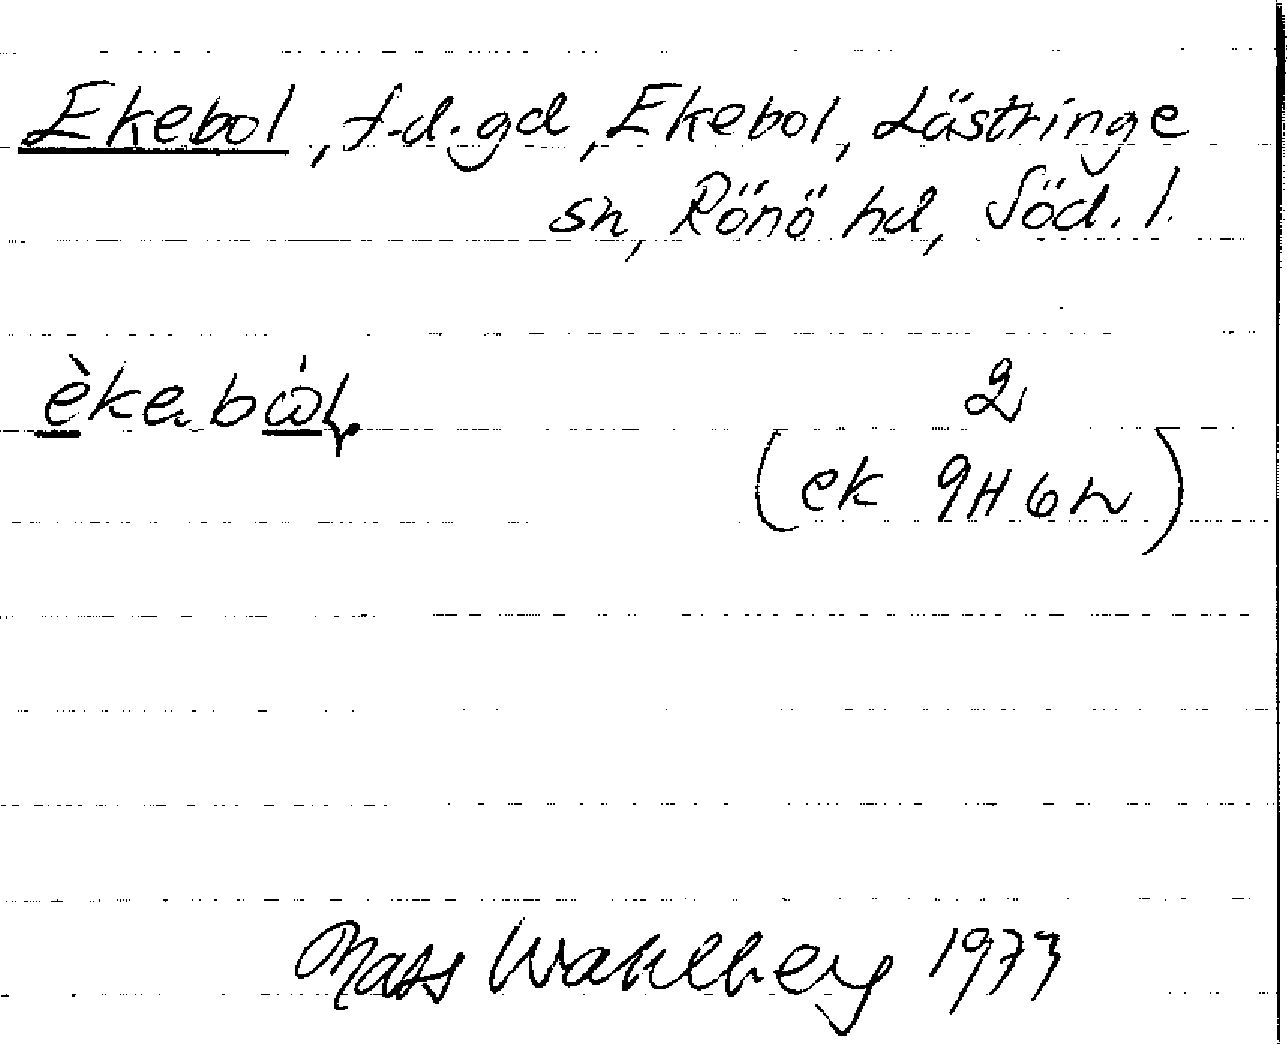 Ekebol, f.d. gd, Ekebol, Lästringe
sn, Rönö hd, Söd. l.
èkebὼɭ 2
(ek 9H6h)
Mats Wahlberg 1973